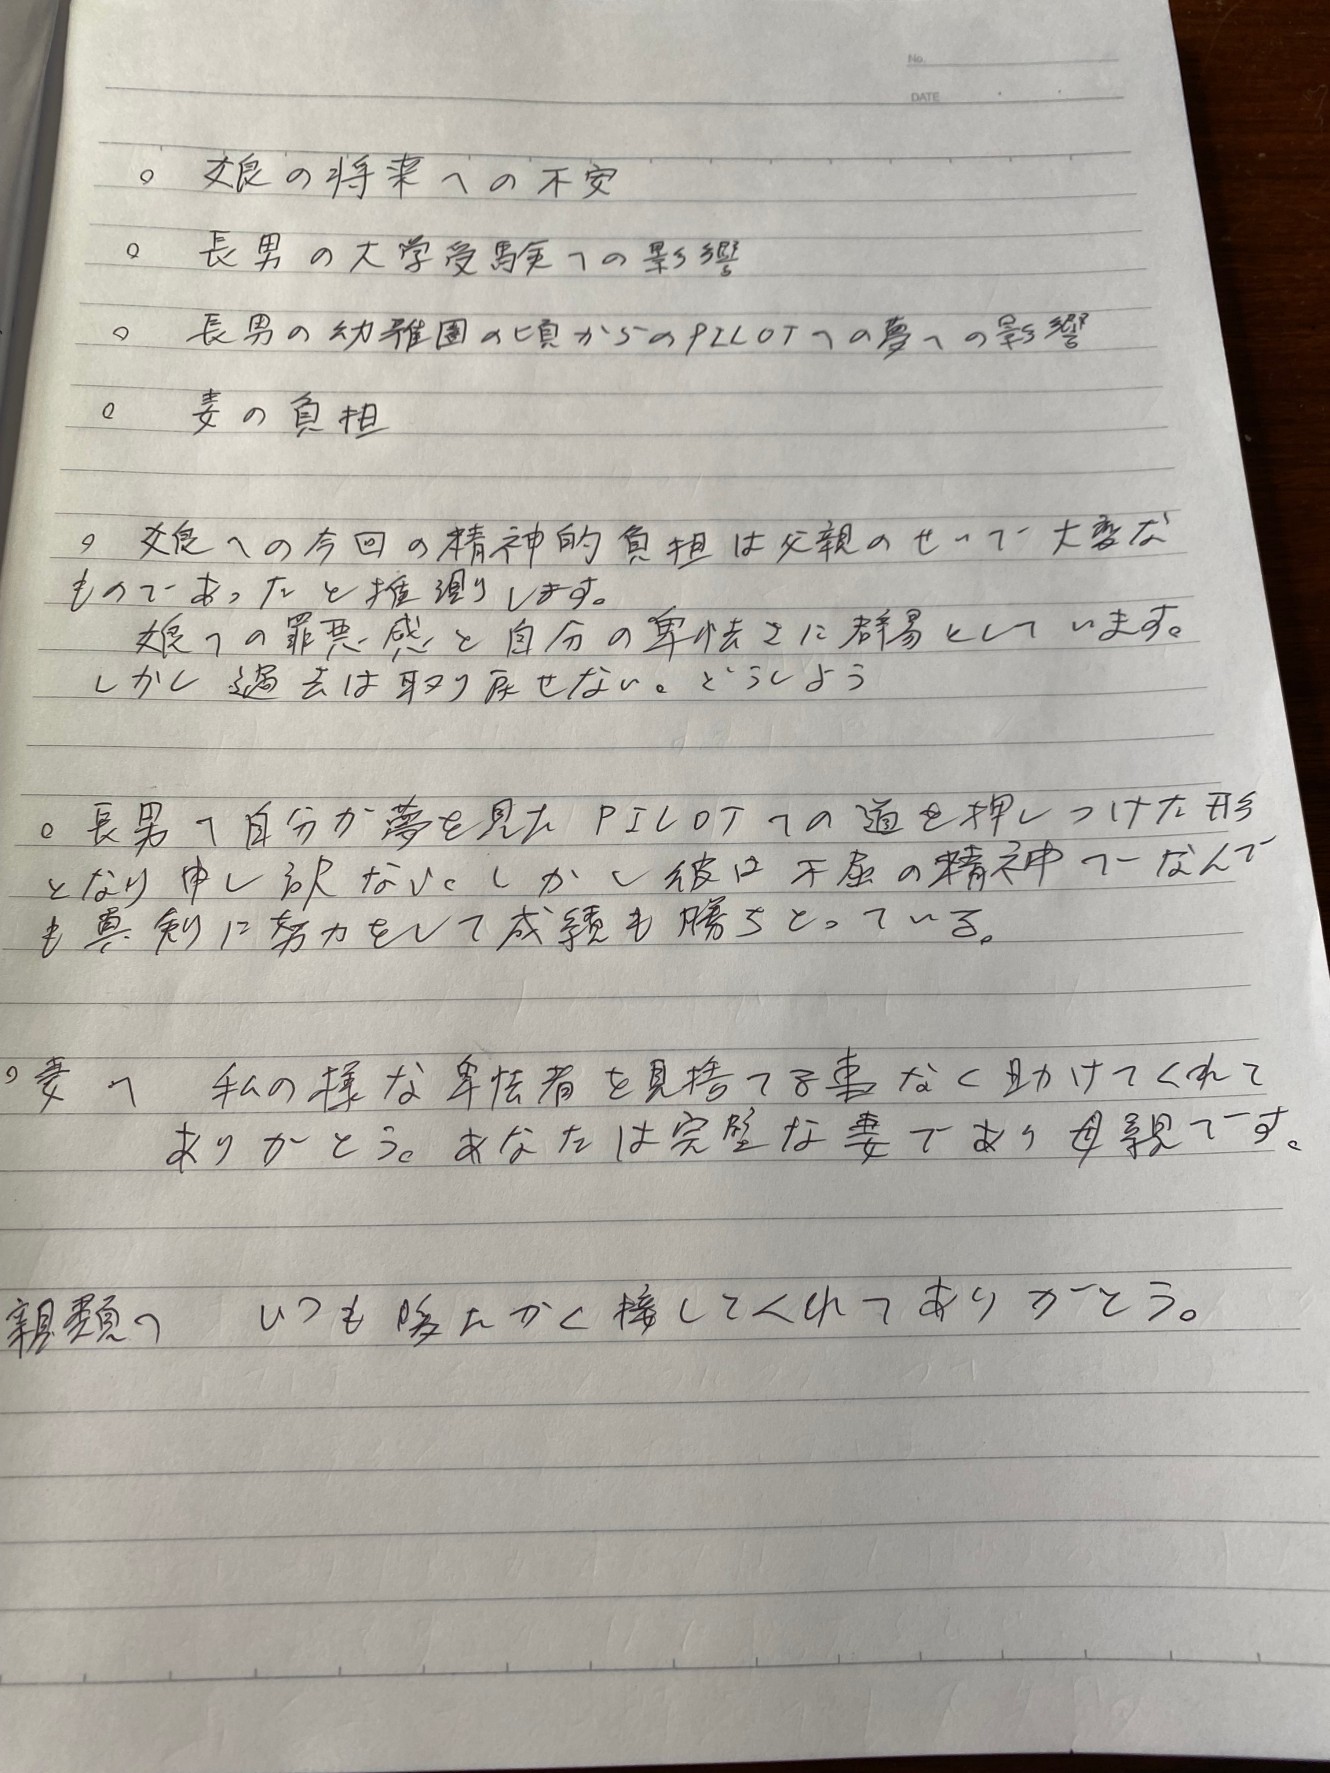 No.
DATE
。 娘の将来への不安
。 長男の大学受験への影響
。 長男の幼稚園の頃からのPILOTへの夢への影響
。 妻の負担
。 娘への今回の精神的負担は父親のせいで大変な
ものであったと推測します。
娘への罪悪感と自分の卑怯さに辟易としています。
しかし過去は取り戻せない。どうしよう
。長男へ自分が夢を見たPILOTへの道を押しつけた形
となり申し訳ない。しかし彼は不屈の精神でなんで
も真剣に努力をして成績も勝ちとっている。
。妻へ 私の様な卑怯者を見捨てる事なく助けてくれて
ありがとう。あなたは完璧な妻であり母親です。
親類へ いつも暖たかく接してくれてありがとう。